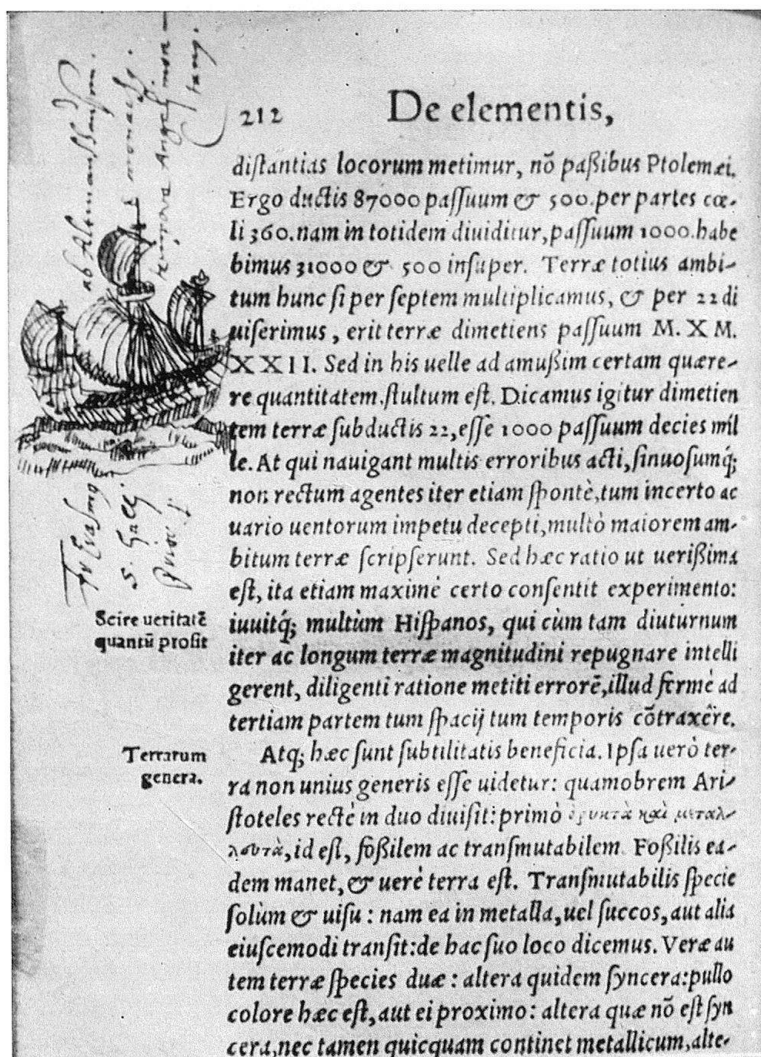 212 De elementis,
distantias locorum metimur, nõ paßibus Ptolemæi.
Ergo ductis 87000 passuum & 500. per partes cœ-
li 360. nam in totidem diuiditur, passuum 1000. habe
bimus 31000 & 500 insuper. Terræ totius ambi-
tum hunc si per septem multiplicamus, & per 22 di
uiserimus, erit terræ dimetiens passuum M. X M.
X X I I. Sed in his uelle ad amußim certam quære-
re quantitatem. stultum est. Dicamus igitur dimetien
tem terræ subductis 22, esse 1000 passuum decies mil
le. At qui nauigant multis erroribus acti, sinuosumq́;
non rectum agentes iter etiam spontè, tum incerto ac
uario uentorum impetu decepti, multò maiorem am-
bitum terræ scripserunt. Sed hæc ratio ut uerißima
est, ita etiam maximè certo consentit experimento:
Scire ueritatẽ
quantũ profit
iuuitq́; multùm Hispanos, qui cùm tam diuturnum
iter ac longum terræ magnitudini repugnare intelli
gerent, diligenti ratione metiti errorẽ, illud fermè ad
tertiam partem tum spacij tum temporis cõtraxêre.
Terrarum
genera.
Atq; hæc sunt subtilitatis beneficia. Ipsa uerò ter-
ra non unius generis esse uidetur: quamobrem Ari-
stoteles rectè in duo diuisit: primò ὀρυκτὰ καὶ μεταλ-
λευτὰ, id est, foßilem ac transmutabilem. Foßilis ea-
dem manet, & uerè terra est. Transmutabilis specie
solùm & uisu: nam ea in metalla, uel succos, aut alia
eiuscemodi transit: de hac suo loco dicemus. Veræ au
tem terræ species duæ: altera quidem syncera: pullo
colore hæc est, aut ei proximo: altera quæ nõ est syn
cera, nec tamen quicquam continet metallicum, alte-